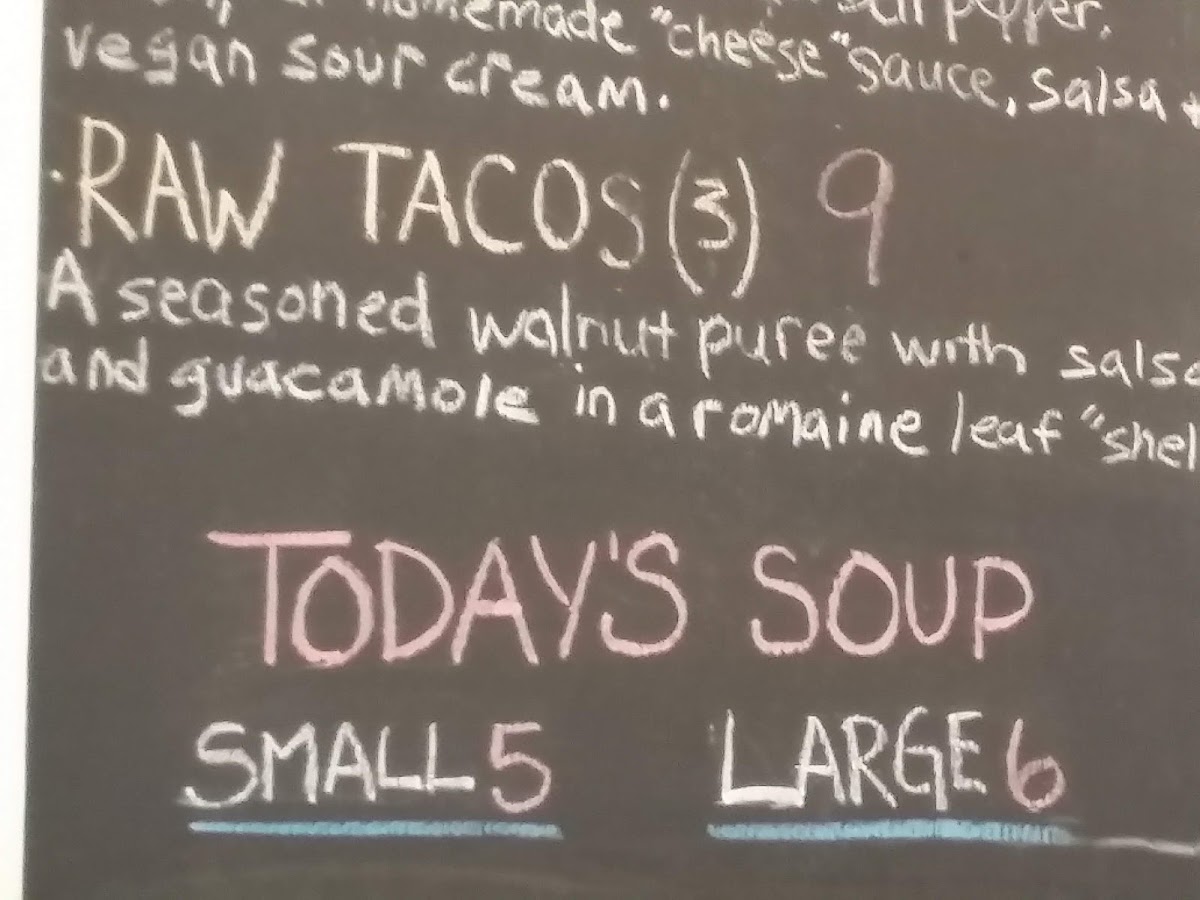 homemade "cheese" sauce, salsa
vegan sour cream.
· RAW TACOS (3) 9
A seasoned walnut puree with salsa
and guacamole in a romaine leaf "shel
TODAY'S SOUP
SMALL 5 LARGE 6